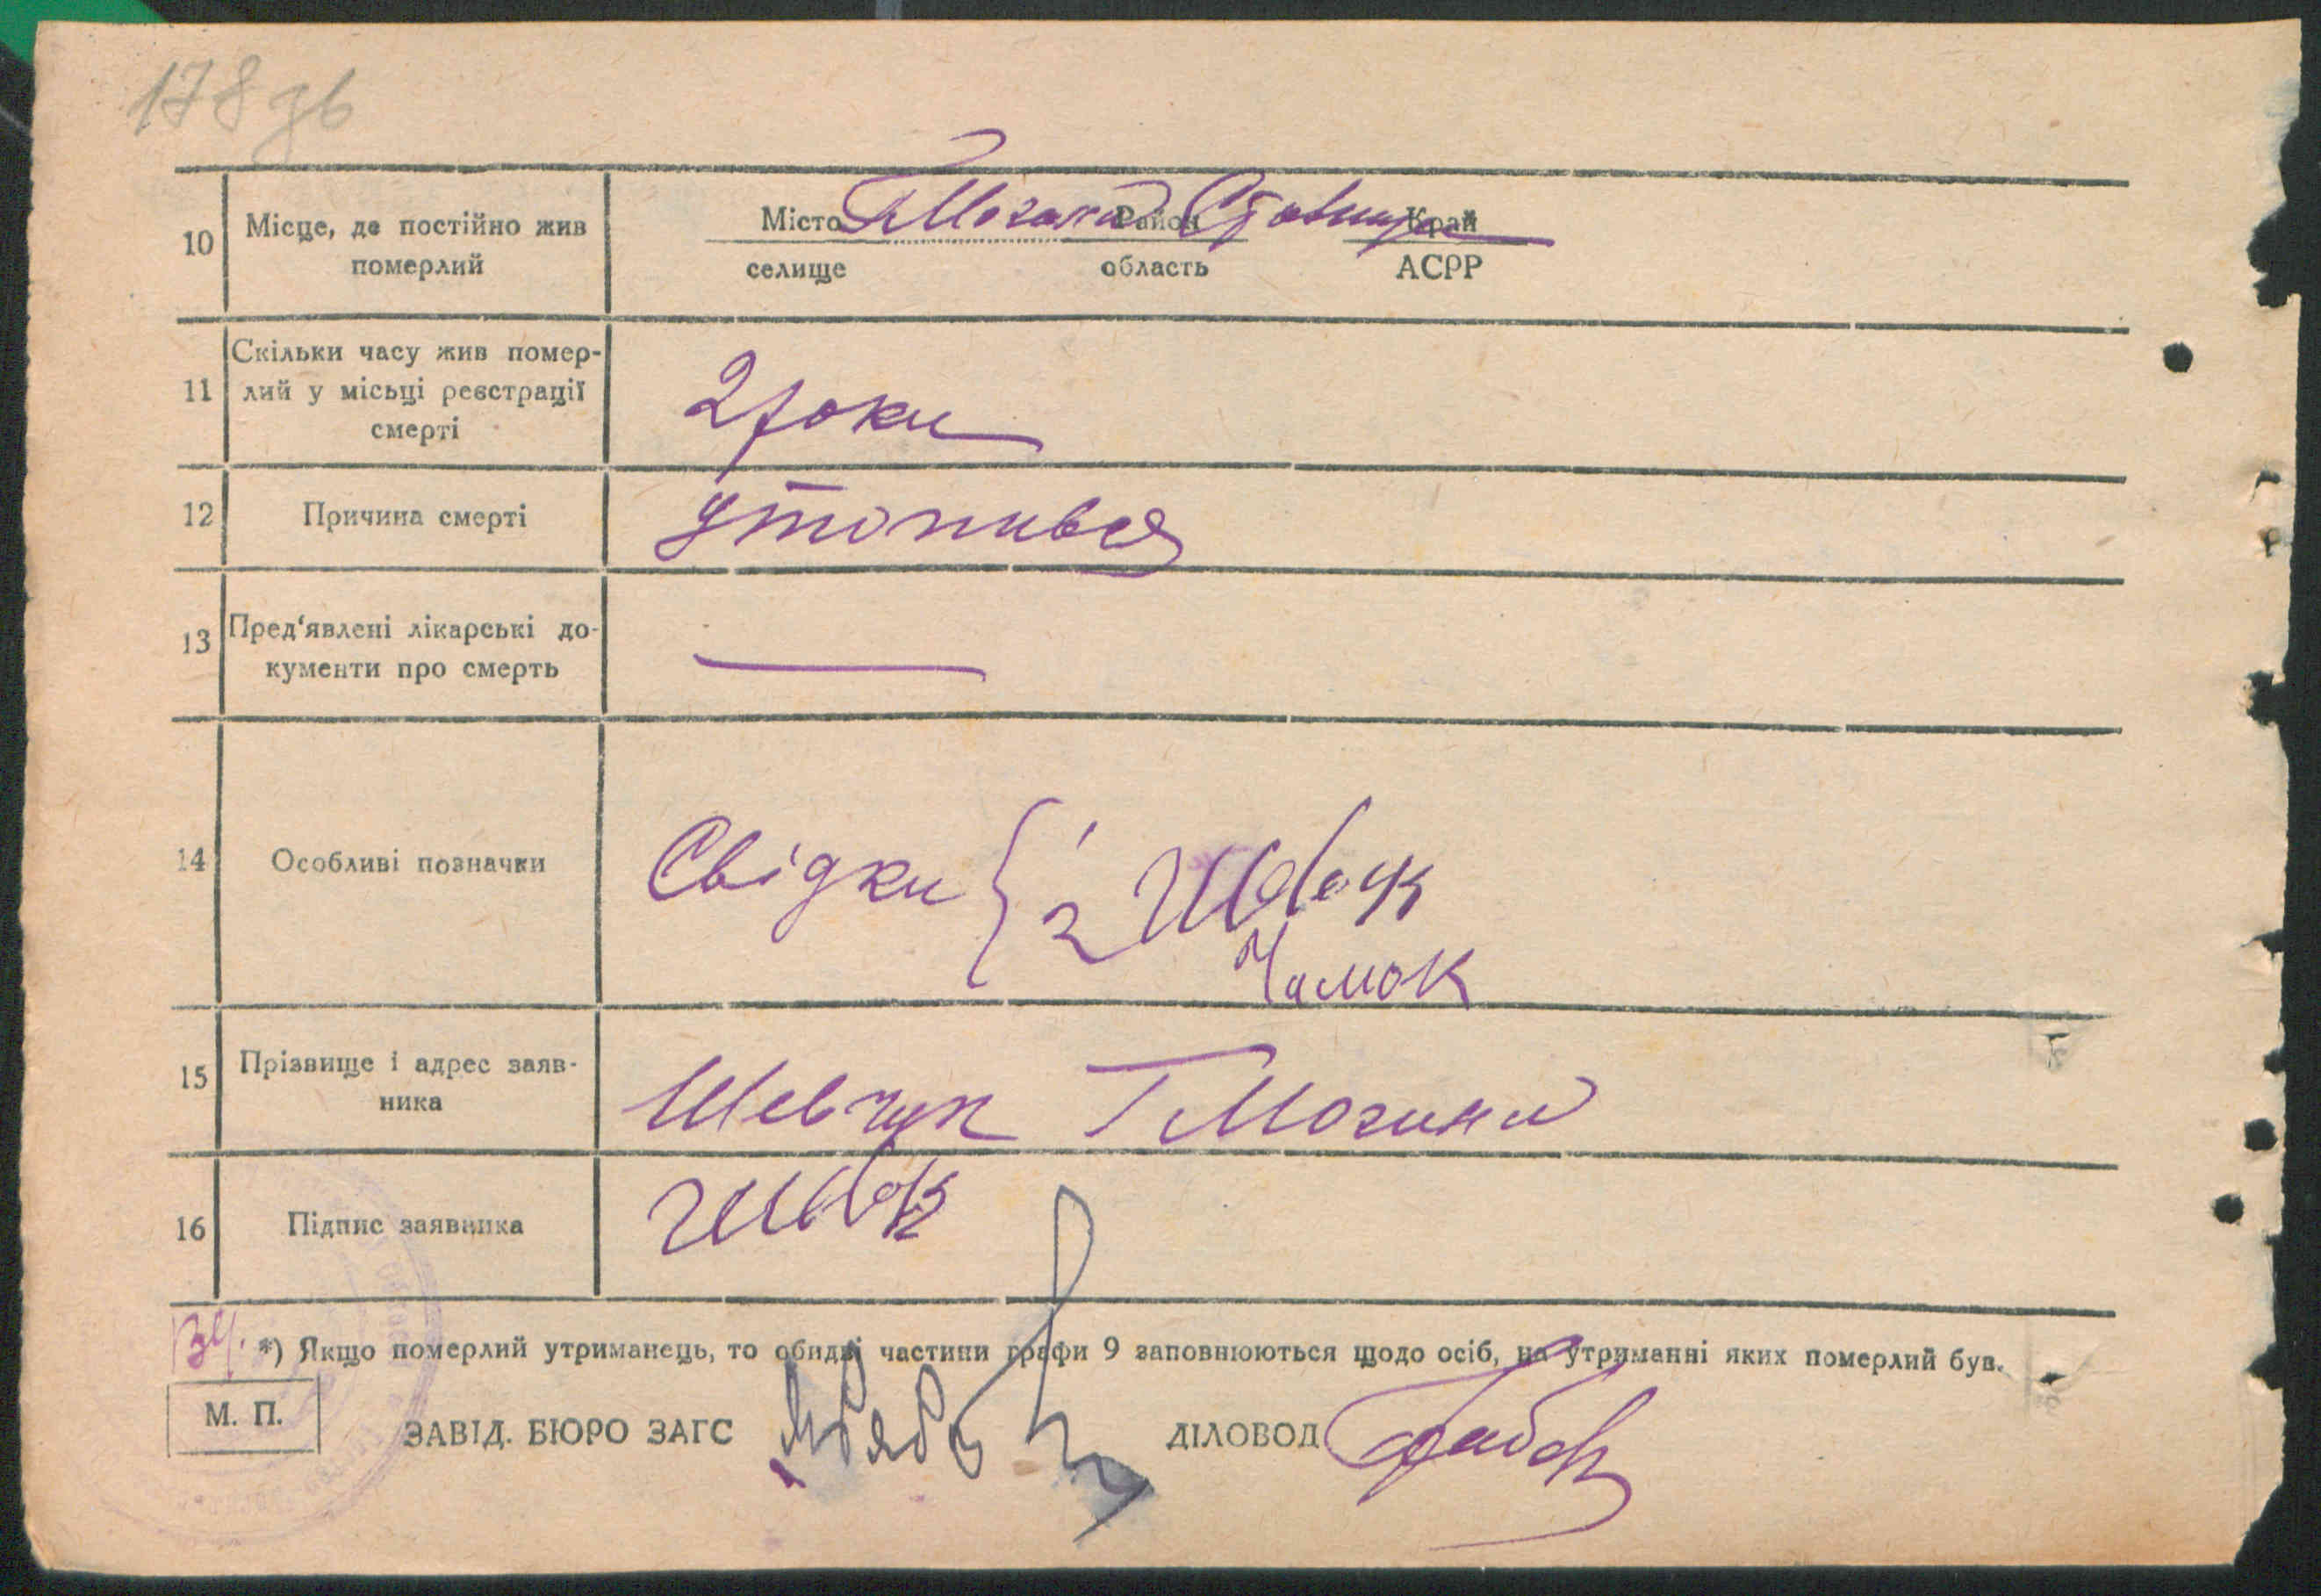 178 зв
10
Місце, де постійно жив
померлий
Місто Район Край
селище область АСРР
11
Скільки часу жив помер-
лий у місьці реєстрації
смерті
2 роки
12
Причина смерті
утопився
13
Пред'явлені лікарські до-
кументи про смерть
14
Особливі позначки
Свідки { 1
2
Чамок
15
Прізвище і адрес заяв-
ника
Шевчук
16
Підпис заявника
*) Якщо померлий утриманець, то обидві частини графи 9 заповнюються щодо осіб, на утриманні яких померлий був.
М. П.
ЗАВІД. БЮРО ЗАГС
ДІЛОВОД